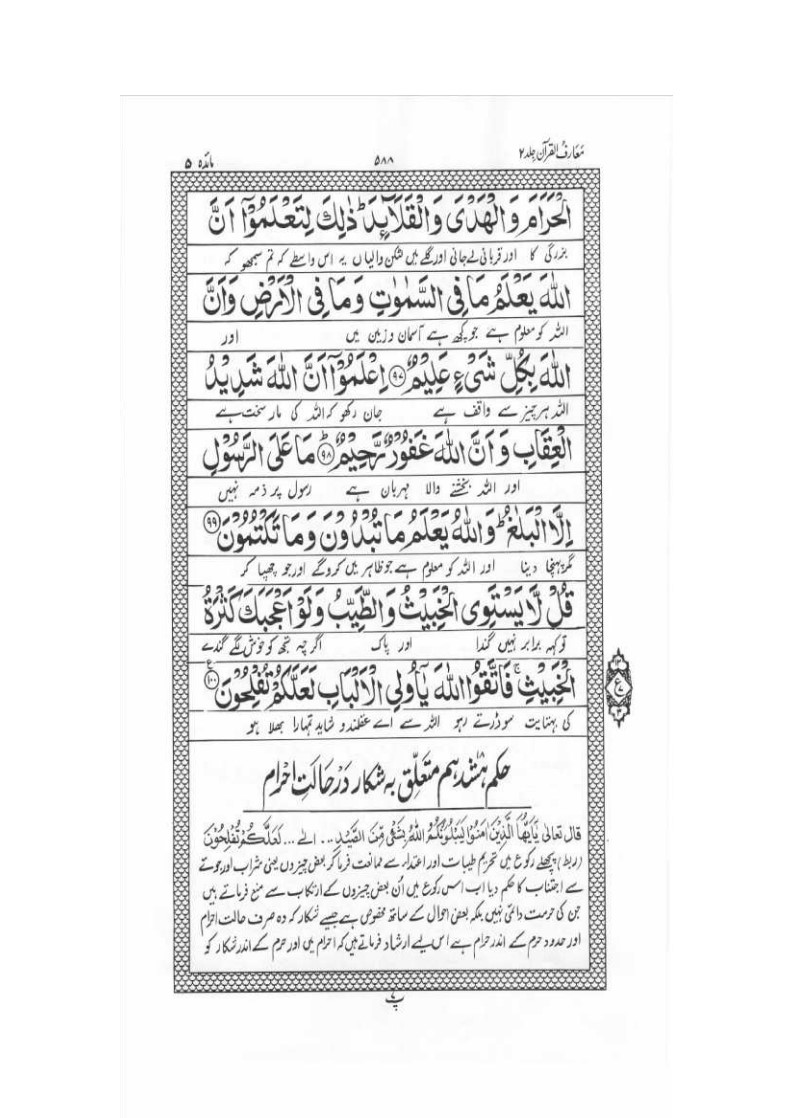 معارف القرآن جلد ۲
۵۸۸
مائدہ ۵
الْحَرَامَ وَالْهَدْیَ وَالْقَلَآئِدَ ؕ ذٰلِكَ لِتَعْلَمُوْۤا اَنَّ
بزرگی کا اور قربانی لے جانی اور گلے میں لٹکن والیاں یہ اس واسطے کہ تم سمجھو کہ
اللّٰهَ یَعْلَمُ مَا فِی السَّمٰوٰتِ وَمَا فِی الْاَرْضِ وَاَنَّ
اللہ کو معلوم ہے جو کچھ ہے آسمان و زمین میں اور
اللّٰهَ بِكُلِّ شَیْءٍ عَلِیْمٌ ﴿۹۷﴾ اِعْلَمُوْۤا اَنَّ اللّٰهَ شَدِیْدُ
اللہ ہر چیز سے واقف ہے جان رکھو کہ اللہ کی مار سخت ہے
الْعِقَابِ وَاَنَّ اللّٰهَ غَفُوْرٌ رَّحِیْمٌ ؕ ﴿۹۸﴾ مَا عَلَی الرَّسُوْلِ
اور اللہ بخشنے والا مہربان ہے رسول پر ذمہ نہیں
اِلَّا الْبَلٰغُ ؕ وَاللّٰهُ یَعْلَمُ مَا تُبْدُوْنَ وَمَا تَكْتُمُوْنَ ﴿۹۹﴾
مگر پہنچا دینا اور اللہ کو معلوم ہے جو ظاہر میں کرو گے اور جو چھپا کر
قُلْ لَّا یَسْتَوِی الْخَبِیْثُ وَالطَّیِّبُ وَلَوْ اَعْجَبَكَ كَثْرَةُ
تو کہہ برابر نہیں گندا اور پاک اگر چہ تجھ کو خوش لگے گندے
الْخَبِیْثِ ۚ فَاتَّقُوا اللّٰهَ یٰۤاُولِی الْاَلْبَابِ لَعَلَّكُمْ تُفْلِحُوْنَ ﴿۱۰۰﴾ ع
کی بہتایت سو ڈرتے رہو اللہ سے اے عقلمندو شاید تمہارا بھلا ہو
حکم ہشدہم متعلّق بہ شکار در حالتِ احرام
قال تعالیٰ یٰۤاَیُّهَا الَّذِیْنَ اٰمَنُوْا لَیَبْلُوَنَّكُمُ اللّٰهُ بِشَیْءٍ مِّنَ الصَّیْدِ ... الےٰ ... لَعَلَّكُمْ تُفْلِحُوْنَ
(ربط) پچھلے رکوع میں تحریم طیبات اور اعتداء سے ممانعت فرما کر بعض چیزوں یعنی شراب اور جوئے
سے اجتناب کا حکم دیا اب اس رکوع میں اُن بعض چیزوں کے ارتکاب سے منع فرماتے ہیں
جن کی حرمت دائمی نہیں بلکہ بعض احوال کے ساتھ مخصوص ہے جیسے شکار کہ وہ صرف حالت احرام
اور حدود حرم کے اندر حرام ہے اس لیے ارشاد فرماتے ہیں کہ احرام میں اور حرم کے اندر شکار کو